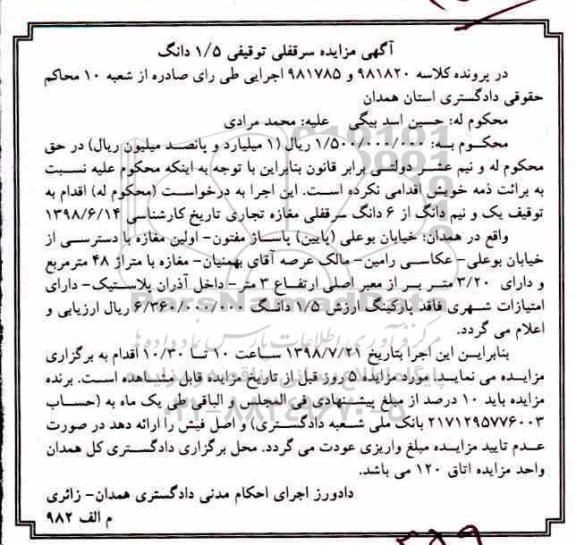 آگهی مزایده سرقفلی توقیفی ۱/۵ دانگ
در پرونده کلاسه ۹۸۱۸۲۰ و ۹۸۱۷۸۵ اجرایی طی رای صادره از شعبه ۱۰ محاکم
حقوقی دادگستری استان همدان
محکوم له: حسین اسد بیگی علیه: محمد مرادی
محکوم به: ۱/۵۰۰/۰۰۰/۰۰۰ ریال (۱ میلیارد و پانصد میلیون ریال) در حق
محکوم له و نیم عشر دولتی برابر قانون بنابراین با توجه به اینکه محکوم علیه نسبت
به برائت ذمه خویش اقدامی نکرده است. این اجرا به درخواست (محکوم له) اقدام به
توقیف یک و نیم دانگ از ۶ دانگ سرقفلی مغازه تجاری تاریخ کارشناسی ۱۳۹۸/۶/۱۴
واقع در همدان: خیابان بوعلی (پایین) پاساژ مفتون- اولین مغازه با دسترسی از
خیابان بوعلی- عکاسی رامین- مالک عرصه آقای بهمنیان- مغازه با متراژ ۴۸ مترمربع
و دارای ۳/۲۰ متر بر از معبر اصلی ارتفاع ۳ متر- داخل آذران پلاستیک- دارای
امتیازات شهری فاقد پارکینگ ارزش ۱/۵ دانگ ۶/۳۶۰/۰۰۰/۰۰۰ ریال ارزیابی و
اعلام می گردد.
بنابراین این اجرا بتاریخ ۱۳۹۸/۷/۲۱ ساعت ۱۰ تا ۱۰/۳۰ اقدام به برگزاری
مزایده می نماید مورد مزایده ۵ روز قبل از تاریخ مزایده قابل مشاهده است. برنده
مزایده باید ۱۰ درصد از مبلغ پیشنهادی فی المجلس و الباقی طی یک ماه به (حساب
۲۱۷۱۲۹۵۷۷۶۰۰۳ بانک ملی شعبه دادگستری) و اصل فیش را ارائه دهد در صورت
عدم تایید مزایده مبلغ واریزی عودت می گردد. محل برگزاری دادگستری کل همدان
واحد مزایده اتاق ۱۲۰ می باشد.
دادورز اجرای احکام مدنی دادگستری همدان- زائری
م الف ۹۸۲